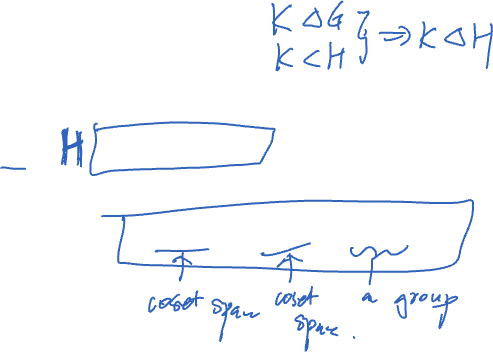 K Δ G
K < H } ⇒ K Δ H
H
coset space coset space. a group